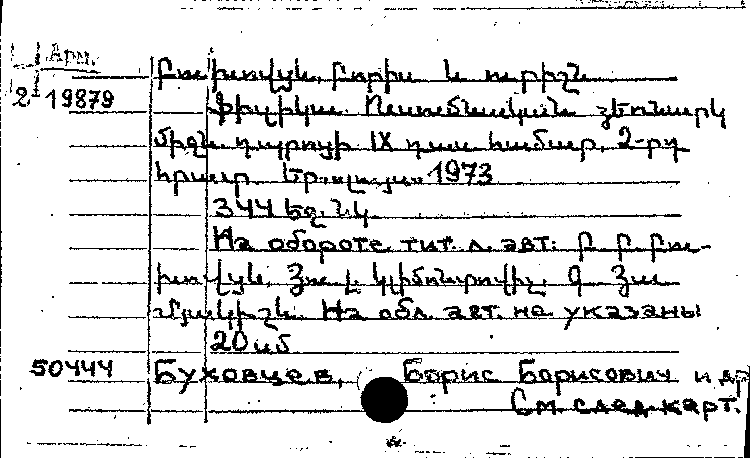 Арм.
2-19879
Բուխովցև, Բորիս և ուրիշն
Ֆիզիկա. Ուսումնական ձեռնարկ
միջն. դպրոցի IX դաս. համար. 2-րդ
հրատ. Եր., Լույս 1973
344 եջ. նկ
На обороте тит. л. авт: Բ. Բ. Բու-
խովցև, Յու. Լ. Կլիմոնտովիչ, Գ. Յա
Մյակիշև. На обл. авт. не указаны
20
50444 Буховцев, Борис Борисович и др
См. след. карт.